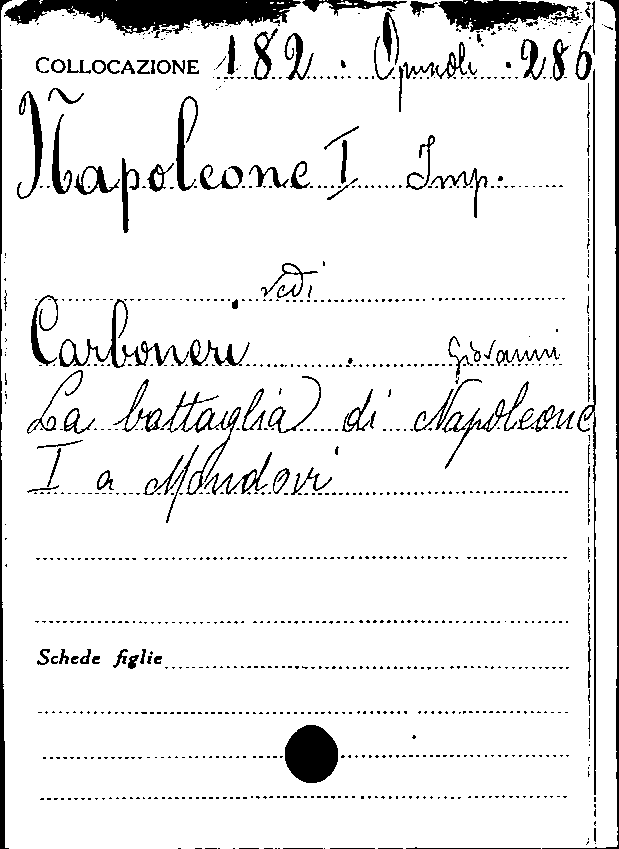 COLLOCAZIONE 182 . Opuscoli . 286
Napoleone I Imp.
vedi
Carboneri . Giovanni
La battaglia di Napoleone
I a Mondovì
Schede figlie